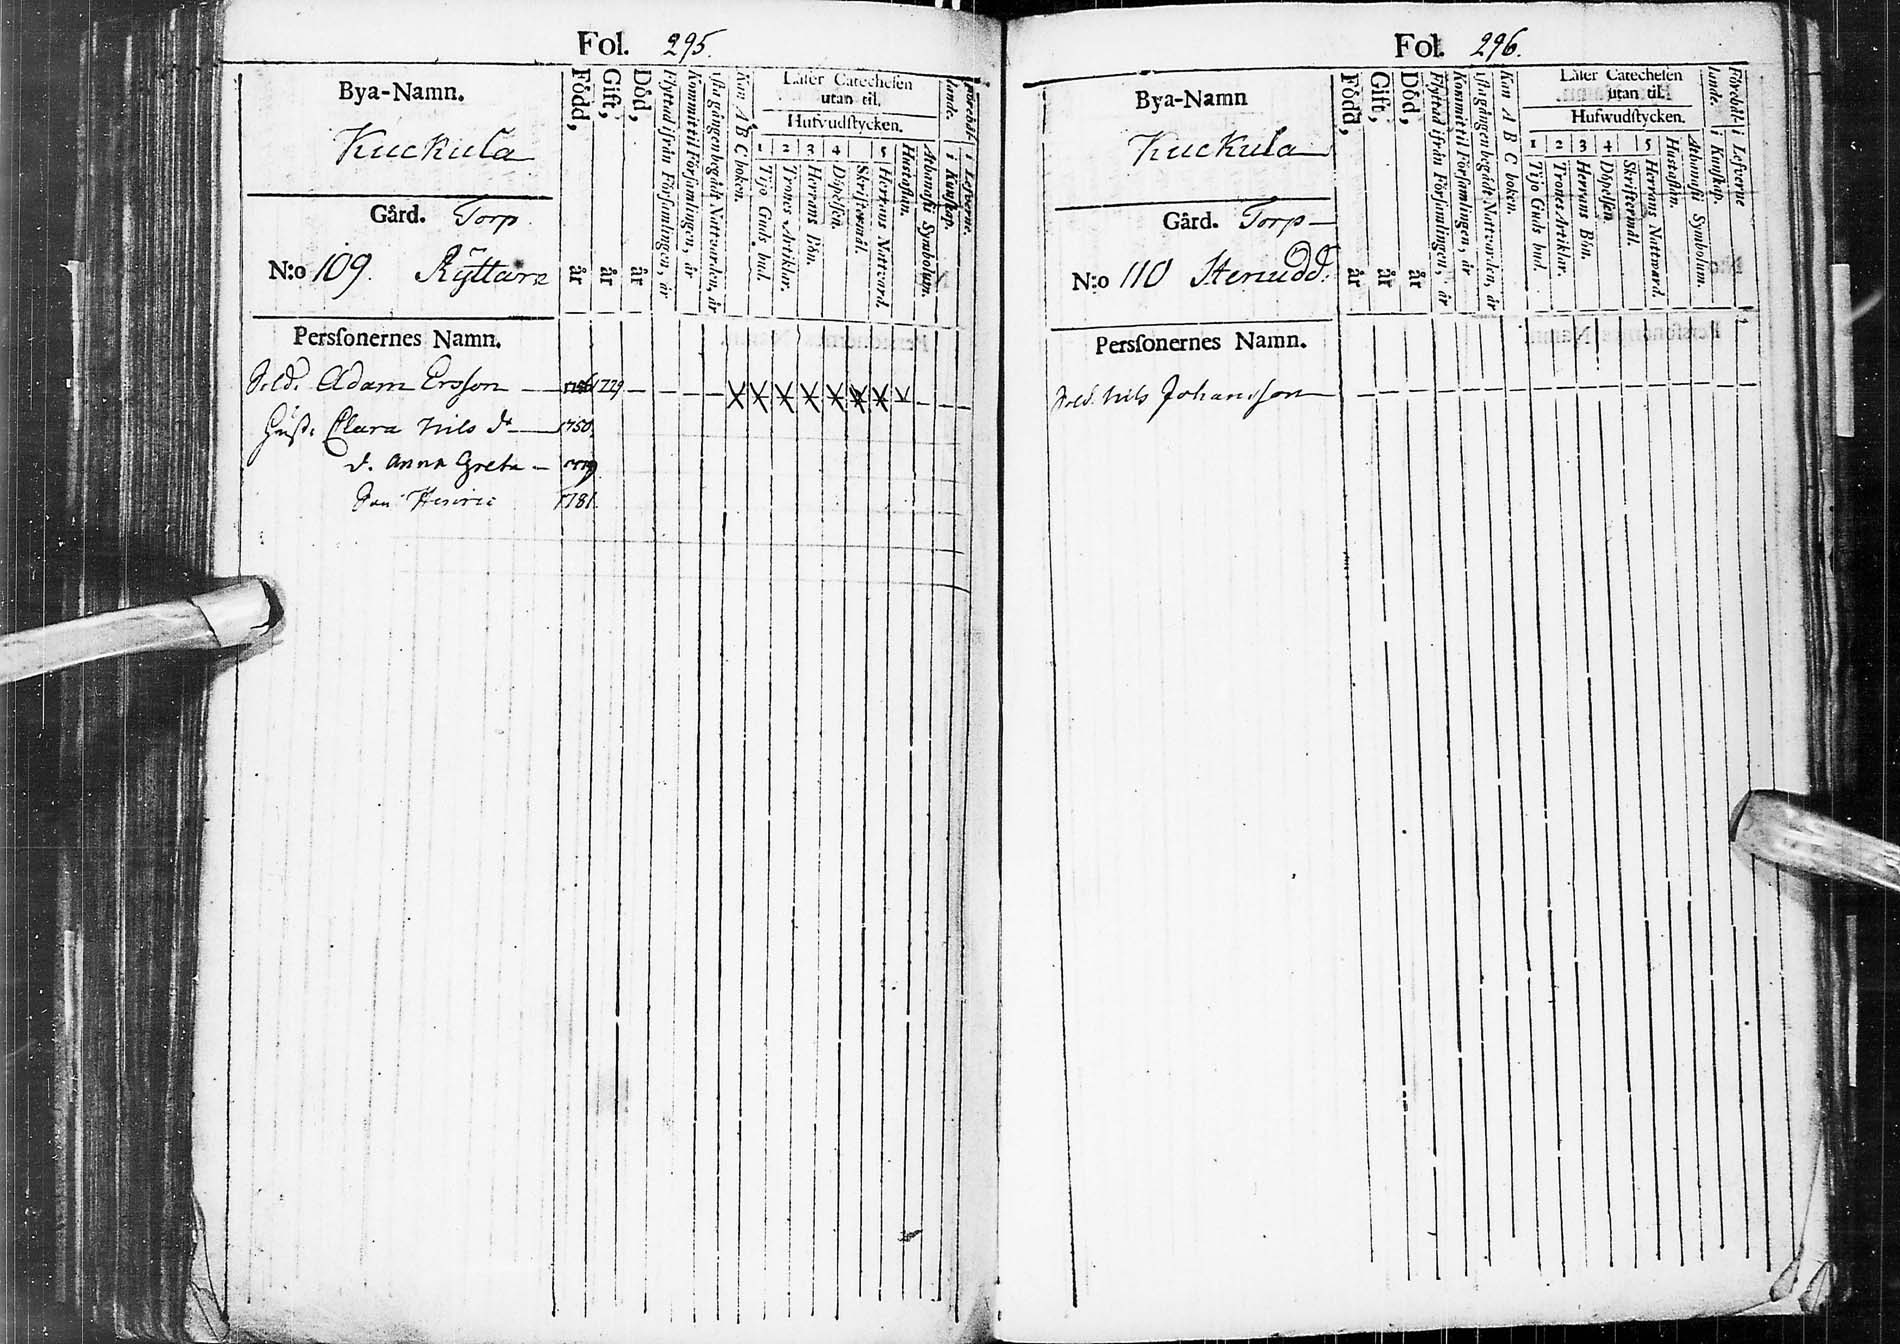 Fol. 295.
Bya-Namn.
Kuckula
Gård. Torp.
N:o 109. Ryttare
Född, år
Gift, år
Död, år
Flyttad ifrån Församlingen, år
Kommit til Församlingen, år
1sta gången begådt Nattvarden, år
Kan A B C boken.
Läser Catechesen
utan til.
Hufvudstycken.
1 Tijo Guds bud.
2 Trones Artiklar.
3 Herrans Bön.
4 Döpelsen.
Skriftermål.
5 Herrans Nattvard.
Hustaflan.
Athanasii Symbolum.
i Kunskap.
i Lefverne.
Persſonernes Namn.
Sold. Adam Ersson 1779
Hust. Clara Nils dr 1750.
d. Anna Greta
Son Henric 1781.
Fol. 296.
Bya-Namn
Kuckula
Gård. Torp
N:o 110 Stenudd.
Född, år
Gift, år
Död, år
Flyttad ifrån Församlingen, år
Kommit til Församlingen, år
1sta gången begådt Nattvarden, år
Kan A B C boken.
Läser Catechesen
utan til.
Hufwudstycken.
1 Tijo Guds bud.
2 Trones Artiklar.
3 Herrans Bön.
4 Döpelsen.
Skriftermål.
5 Herrans Nattward.
Hustaflan.
Athanasii Symbolum.
i Kunskap.
i Lefverne
Persſonernes Namn.
Sold. Nils Johansson